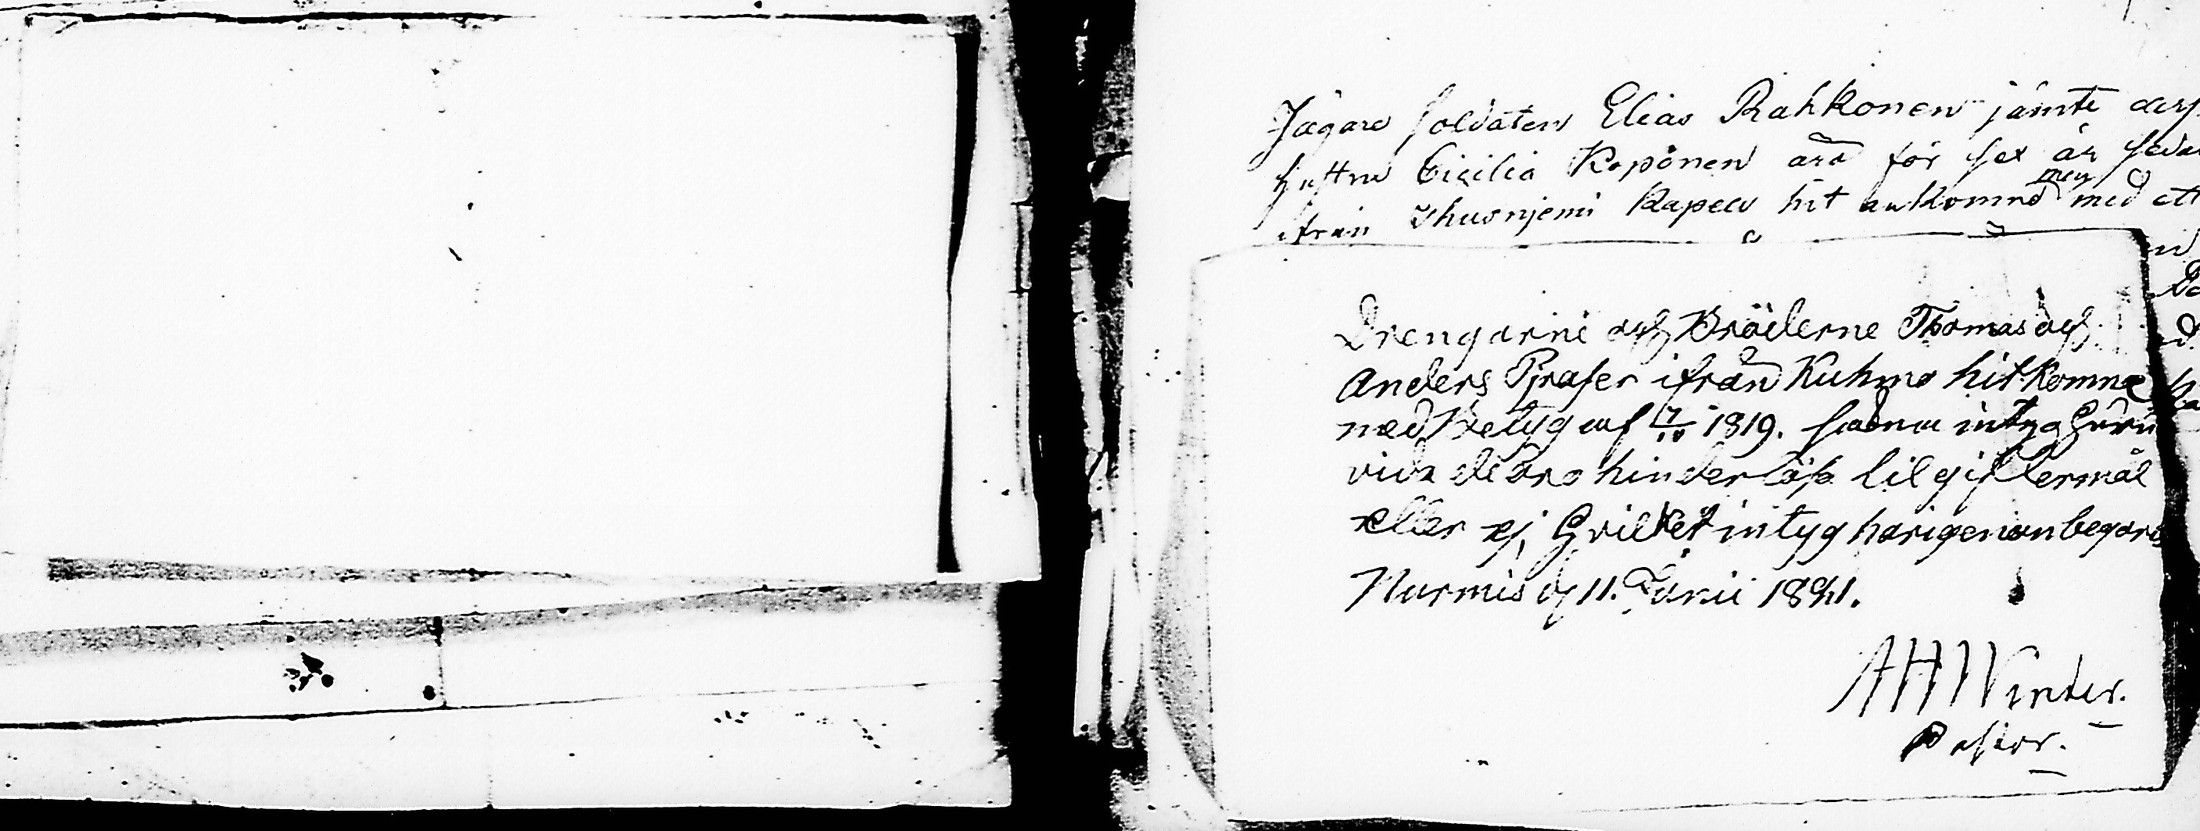 Jägare soldaten Elias Rahkonen jämte
hustru Cicilia Koponen äro för sex år sedan
ifrån Kapell hit ankomne men med ett
Drengarne och Bröderne Thomas och
Anders Pjraser ifrån Kuhmo hitkomne
med Betyg af 17/10 1819. sakna intyg huru
vida de äro hinderlöse til giftermål
eller ej, Hvilket intyg härigenom begäres
Nurmis d 11. Junii 1821.
AHWinter.
Pastor.